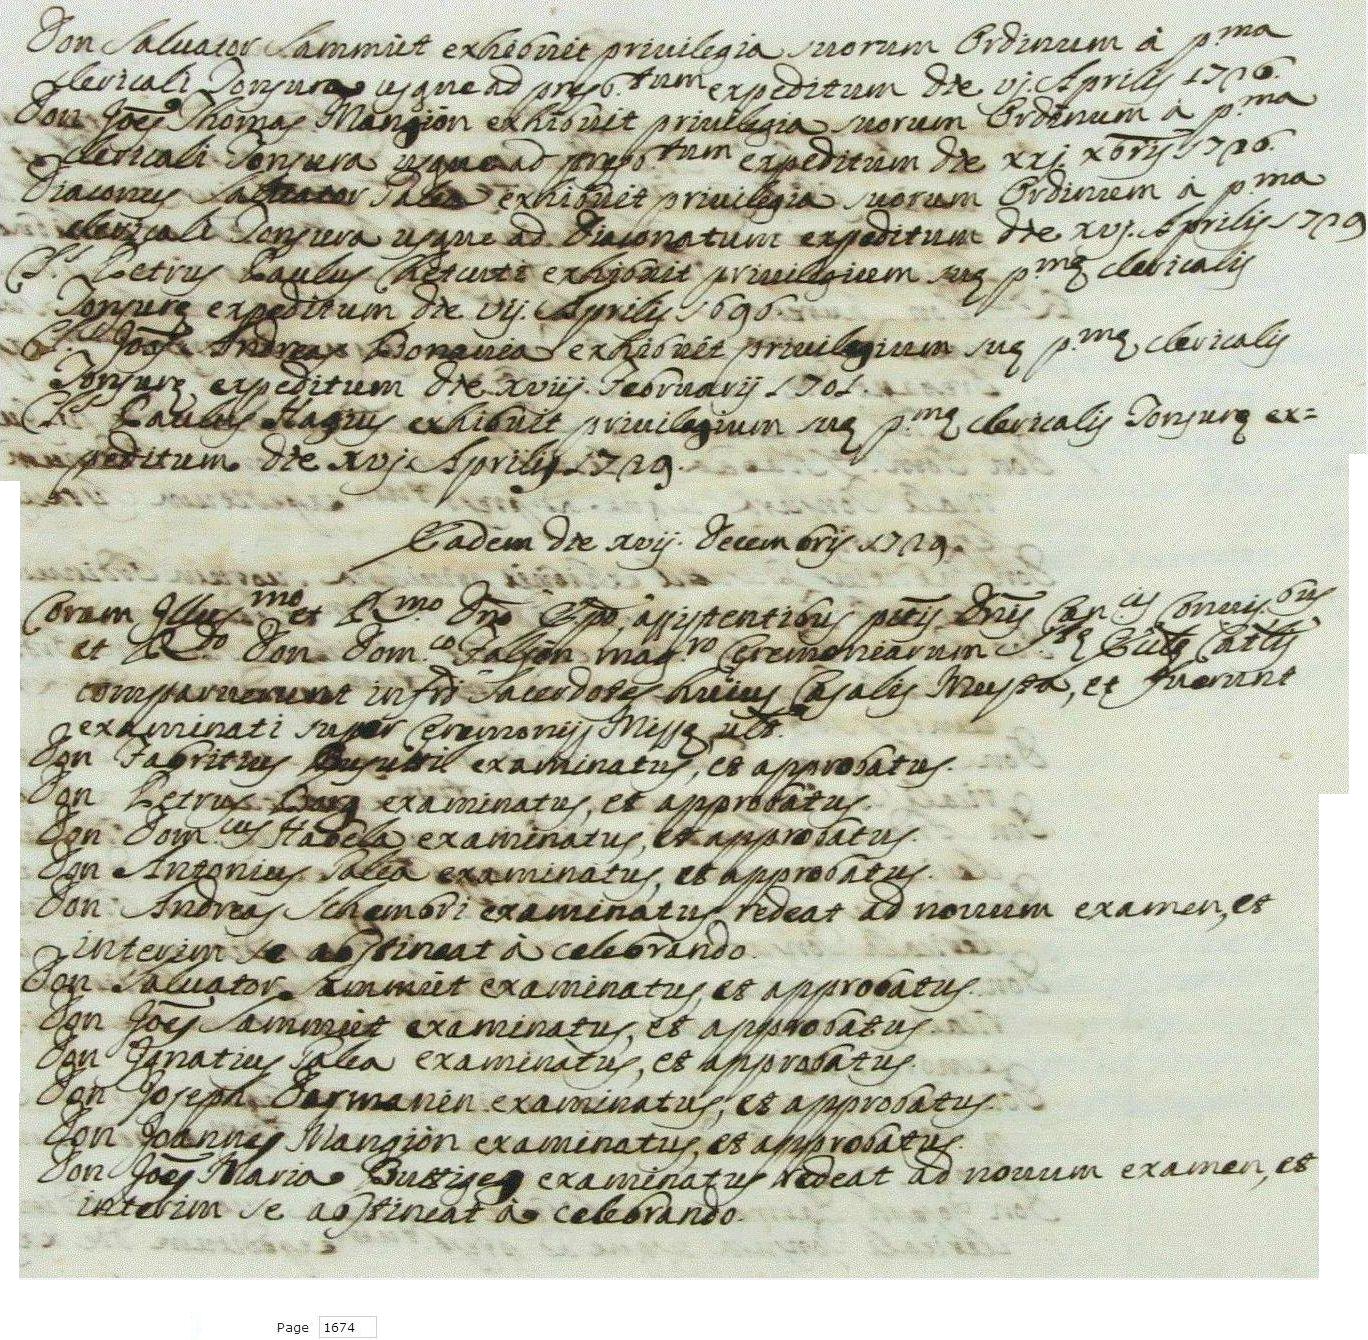 Don Salvator Sammut exhibuit privilegia suorum Ordinum à p.ma
clericali Tonsura usque ad presb.tum expeditum die vj. Aprilis 1726.
Don Joēs Thomas Mangion exhibuit privilegia suorum Ordinum à p.ma
clericali Tonsura usque ad presb.tum expeditum die xxj xbris 1726.
Diaconus Salvator Salea exhibuit privilegia suorum Ordinum à p.ma
clericali Tonsura usque ad Diaconatum expeditum die xvj. Aprilis 1729
Petrus Paulus exhibuit privilegium suę p.mę clericalis
Tonsurę expeditum die vij. Aprilis 1696.
Joēs Andreas Bonavia exhibuit privilegium suę p.mę clericalis
Tonsurę expeditum die xviij. Februarij 1701
Paulus Hagius exhibuit privilegium suę p.mę clericalis Tonsurę ex=
peditum die xvj. Aprilis 1729.
Eadem die xvij. Decembris 1729.
Coram Illus.mo et R.mo Dño Epõ, assistentibus Convis.bus
et R.do Don Dom.co Falson mag.ro Ceremoniarum
comparuerunt infrī Sacerdotes huius Casalis Musta, et fuerunt
examinati super Ceremonijs Missę, ut s.
Don Fabritius Busuttil examinatus, et approbatus.
Don Petrus Borg examinatus, et approbatus.
Don Dom.cus Habela examinatus, et approbatus.
Don Antonius Salea examinatus, et approbatus.
Don Andreas Schembri examinatus, redeat ad novum examen, et
interim se abstineat à celebrando.
Don Salvator Sammut examinatus, et approbatus.
Don Joēs Sammut examinatus, et approbatus.
Don Ignatius Salea examinatus, et approbatus.
Don Joseph Darmanin examinatus, et approbatus.
Don Joannes Mangion examinatus, et approbatus.
Don Joēs Maria Buttigeg examinatus redeat ad novum examen, et
interim se abstineat à celebrando.
Page 1674